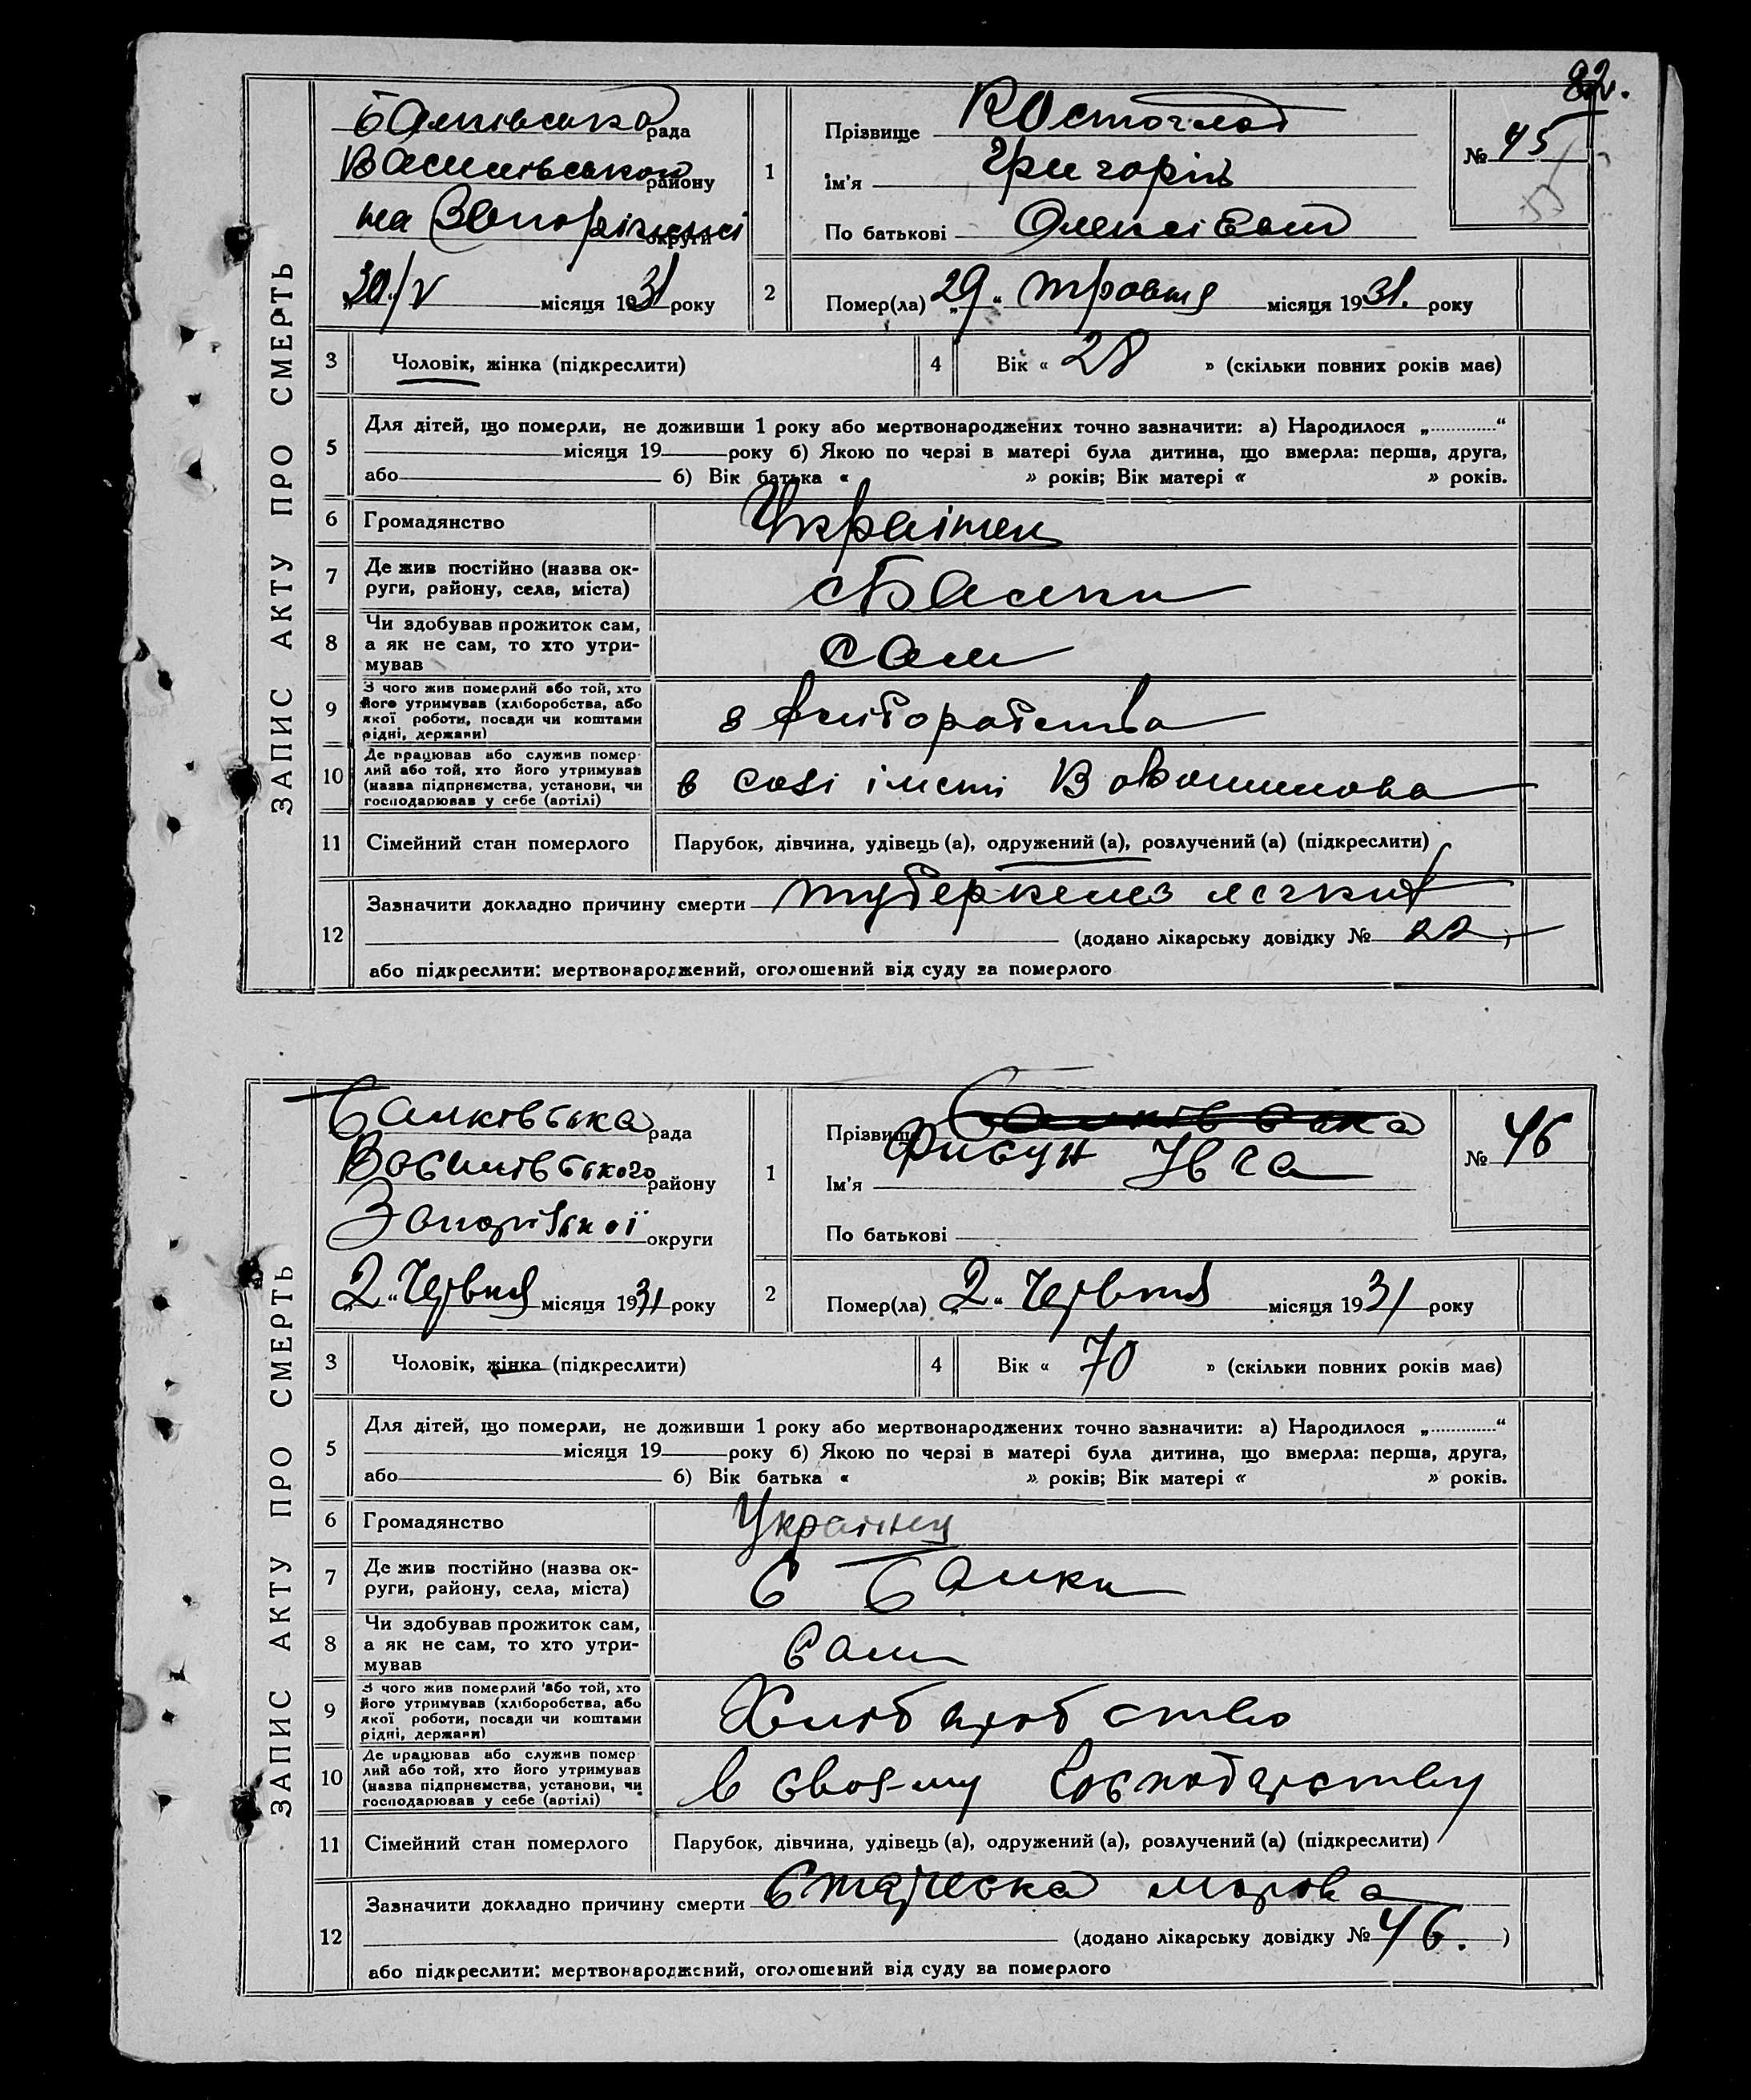 82.
ЗАПИС АКТУ ПРО СМЕРТЬ
Балківська рада
Василівського району
на Запоріжжі округи
„30/V місяця 1931 року
1
Прізвище Костоглод
Ім'я Григорій
По батькові Олексієвич
№ 45
2
Помер(ла) „29“ травня місяця 1931. року
3 Чоловік, жінка (підкреслити)
4 Вік « 28 » (скільки повних років має)
5 Для дітей, що померли, не доживши 1 року або мертвонароджених точно зазначити: а) Народилося „............“
місяця 19 року б) Якою по черзі в матері була дитина, що вмерла: перша, друга,
або б) Вік батька « » років; Вік матері « » років.
6 Громадянство Українец
7 Де жив постійно (назва округи, району, села, міста) с Балки
8 Чи здобував прожиток сам, а як не сам, то хто утримував сам
9 З чого жив померлий або той, хто його утримував (хліборобства, або якої роботи, посади чи коштами рідні, держави) з хліборобства
10 Де працював або служив померлий або той, хто його утримував (назва підприємства, установи, чи господарював у себе (артілі) в созі імені Ворошилова
11 Сімейний стан померлого Парубок, дівчина, удівець (а), одружений (а), розлучений (а) (підкреслити)
12 Зазначити докладно причину смерти туберкельоз легких
(додано лікарську довідку № 22)
або підкреслити: мертвонароджений, оголошений від суду за померлого
ЗАПИС АКТУ ПРО СМЕРТЬ
Балківська рада
Василівського району
Запорізької округи
„2“ Червня місяця 1931 року
1
Прізвище Балківська
Ївга
Ім'я
По батькові
№ 46
2
Помер(ла) „2“ Червня місяця 1931 року
3 Чоловік, жінка (підкреслити)
4 Вік « 70 » (скільки повних років має)
5 Для дітей, що померли, не доживши 1 року або мертвонароджених точно зазначити: а) Народилося „............“
місяця 19 року б) Якою по черзі в матері була дитина, що вмерла: перша, друга,
або б) Вік батька « » років; Вік матері « » років.
6 Громадянство
7 Де жив постійно (назва округи, району, села, міста) С Балки
8 Чи здобував прожиток сам, а як не сам, то хто утримував Сам
9 З чого жив померлий або той, хто його утримував (хліборобства, або якої роботи, посади чи коштами рідні, держави) Хліборобство
10 Де працював або служив померлий або той, хто його утримував (назва підприємства, установи, чи господарював у себе (артілі) в своєму господарству
11 Сімейний стан померлого Парубок, дівчина, удівець (а), одружений (а), розлучений (а) (підкреслити)
12 Зазначити докладно причину смерти Старческа
(додано лікарську довідку № 46.)
або підкреслити: мертвонароджений, оголошений від суду за померлого